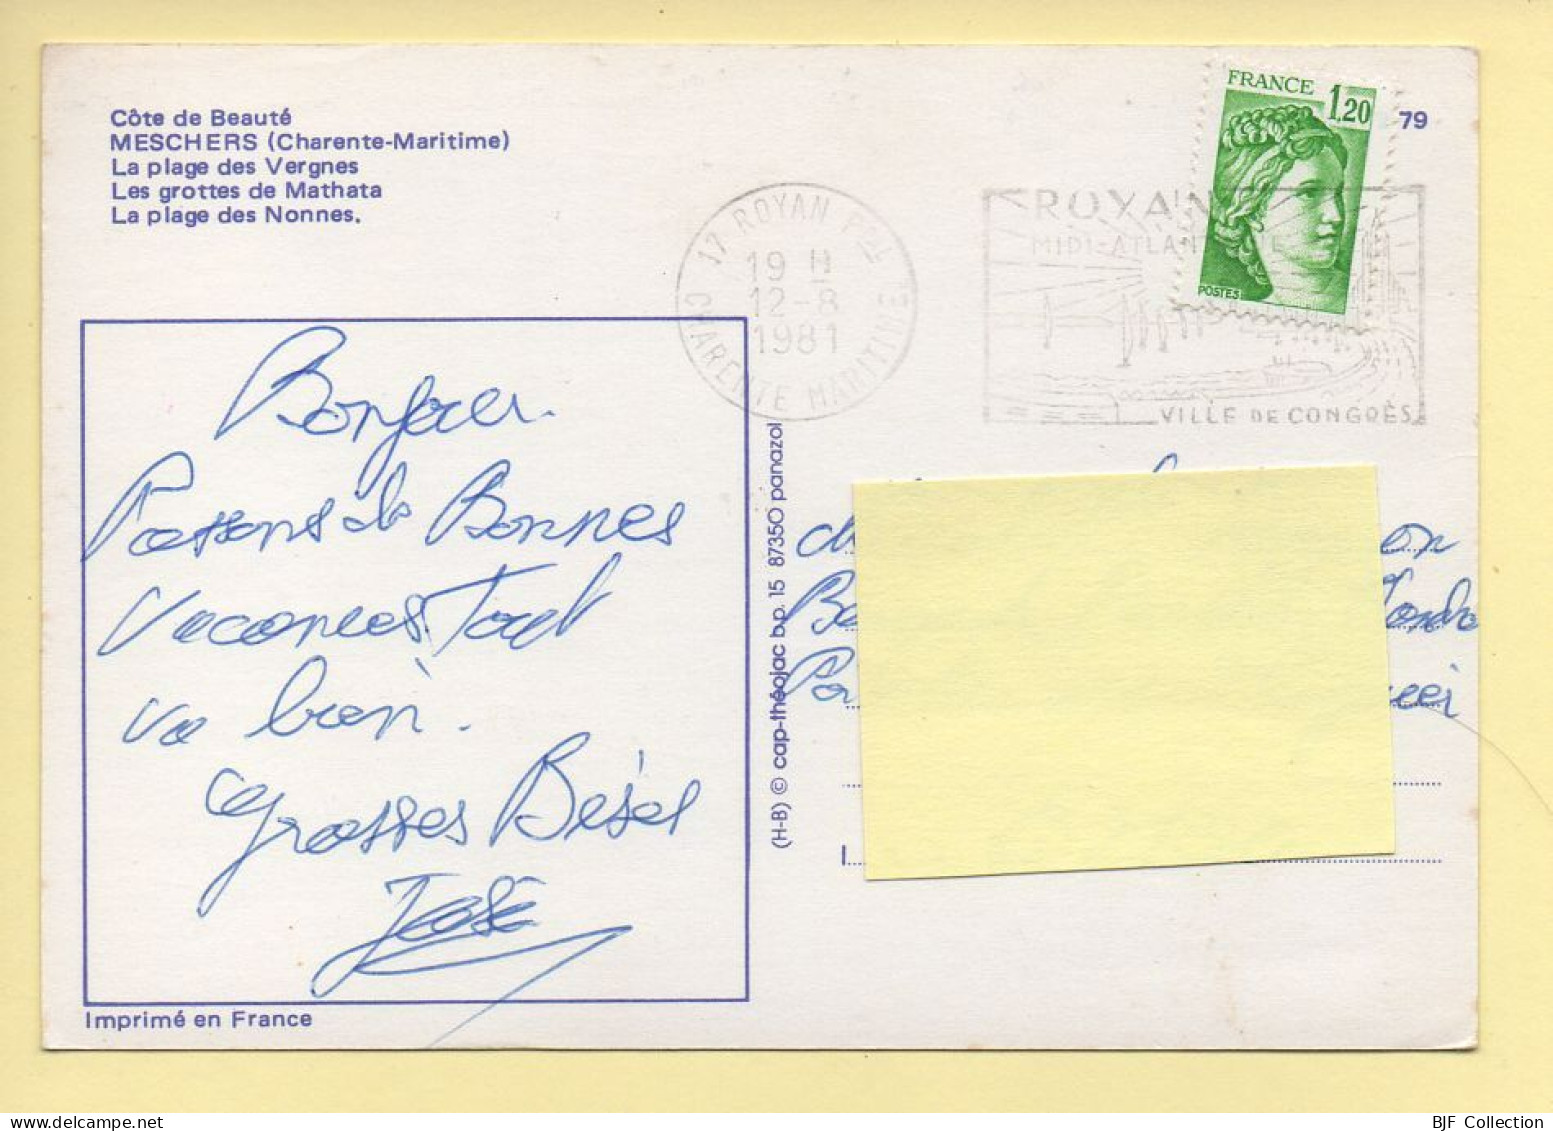 Côte de Beauté
MESCHERS (Charente-Maritime)
La plage des Vergnes
Les grottes de Mathata
La plage des Nonnes.
FRANCE 1,20
POSTES
79
17 ROYAN Pal
19 H
12-8
1981
CHARENTE MARITIME
ROYAN
MIDI-ATLANTIQUE
VILLE DE CONGRÈS
Bonjour.
Passons de Bonnes
vacances, Tout
va bien.
Grosses Bises
José
(H-B) © cap-théojac b.p. 15 87350 panazol
Imprimé en France
BJF Collection